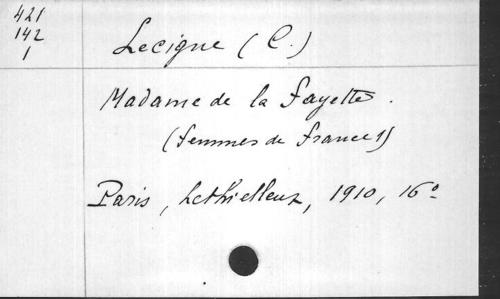 421
142
1
Lecigne (C.)
Madame de la Fayette.
(femmes de France 1)
Paris, Lethielleux, 1910, 16º